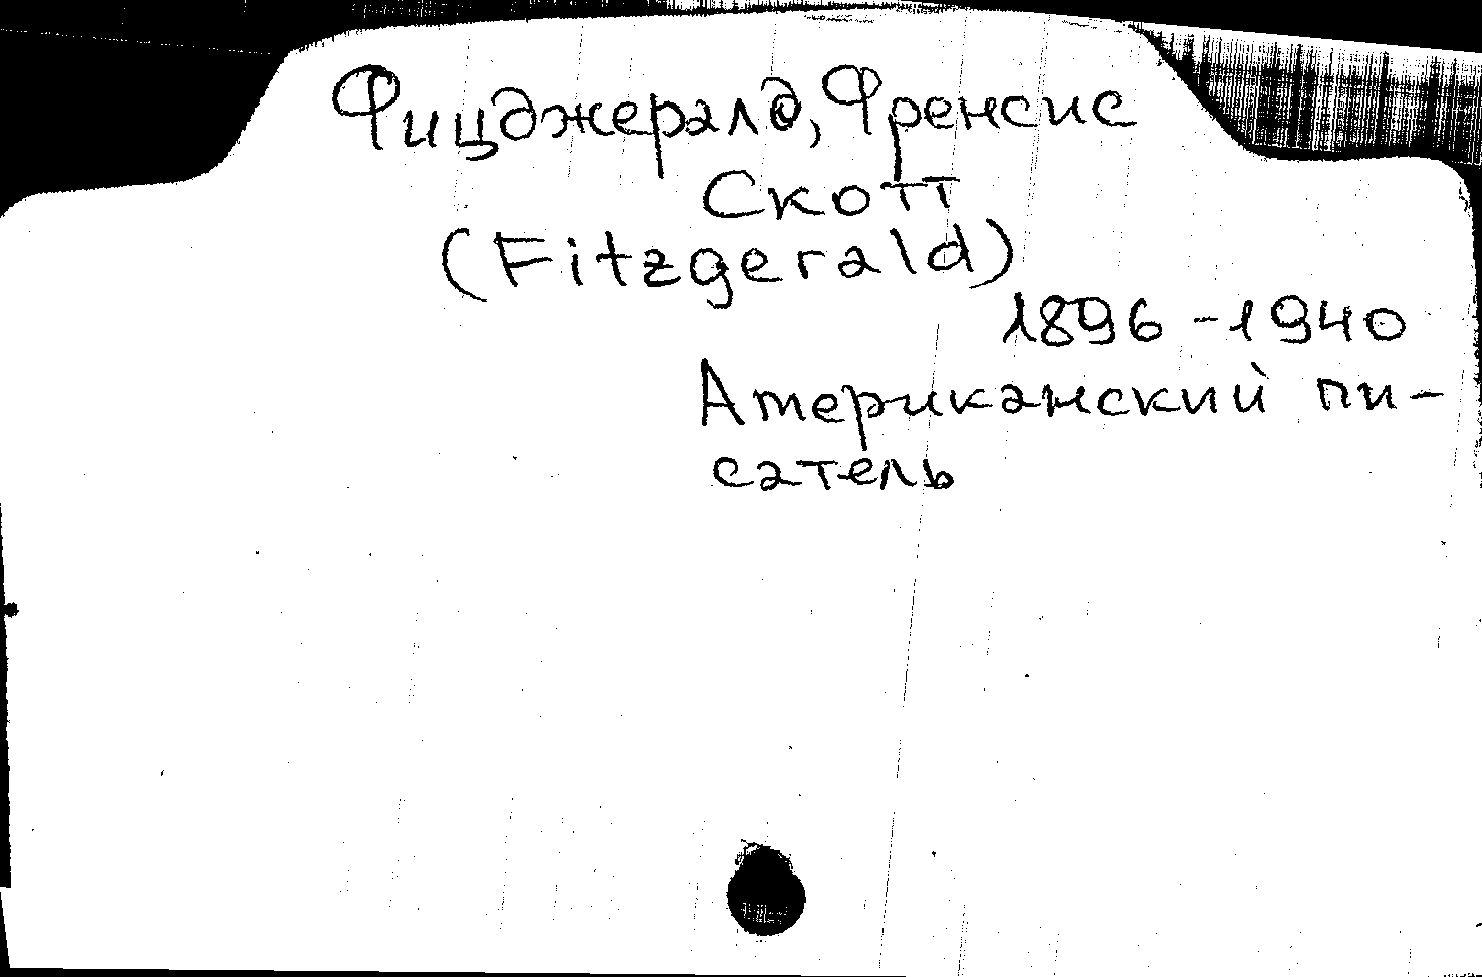 Фицджералд, Френсис
Скотт
(Fitzgerald)
1896-1940
Американский пи-
сатель